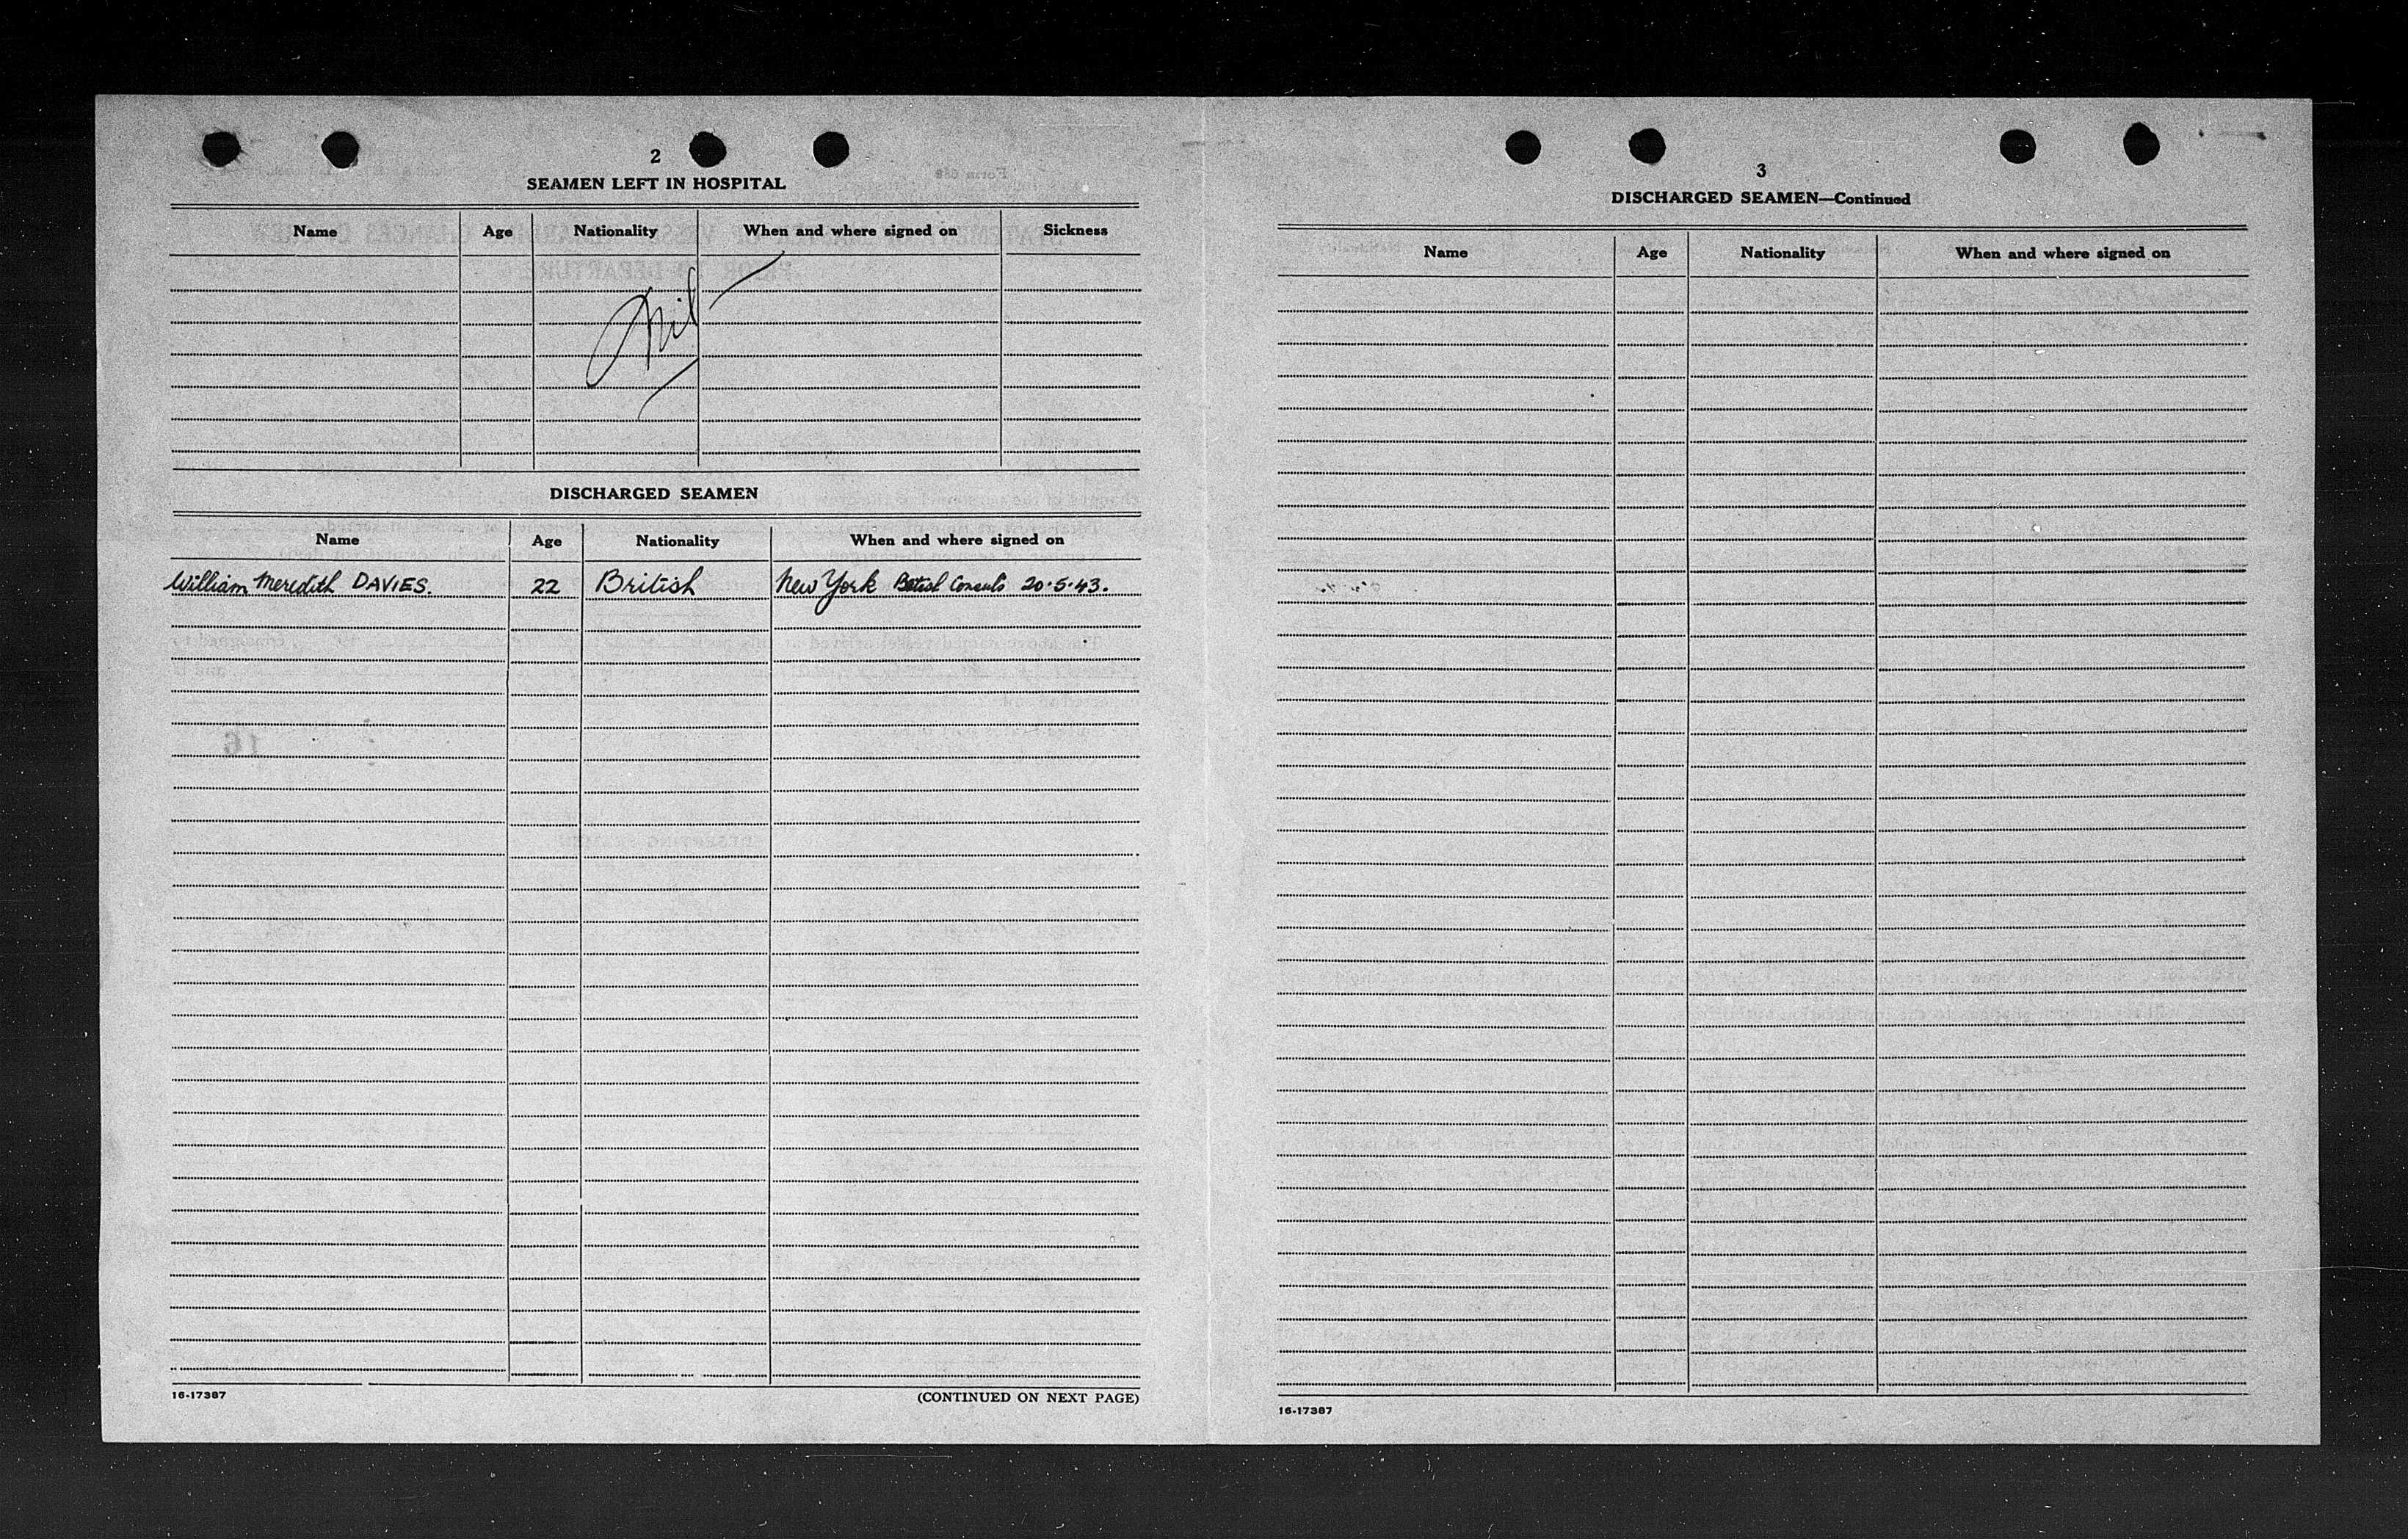 2
SEAMEN LEFT IN HOSPITAL
Name Age Nationality When and where signed on Sickness
Nil
DISCHARGED SEAMEN
Name Age Nationality When and where signed on
William Meredith DAVIES. 22 British New York British Consuls 20.5.43.
16-17387 (CONTINUED ON NEXT PAGE)
3
DISCHARGED SEAMEN—Continued
Name Age Nationality When and where signed on
16-17387